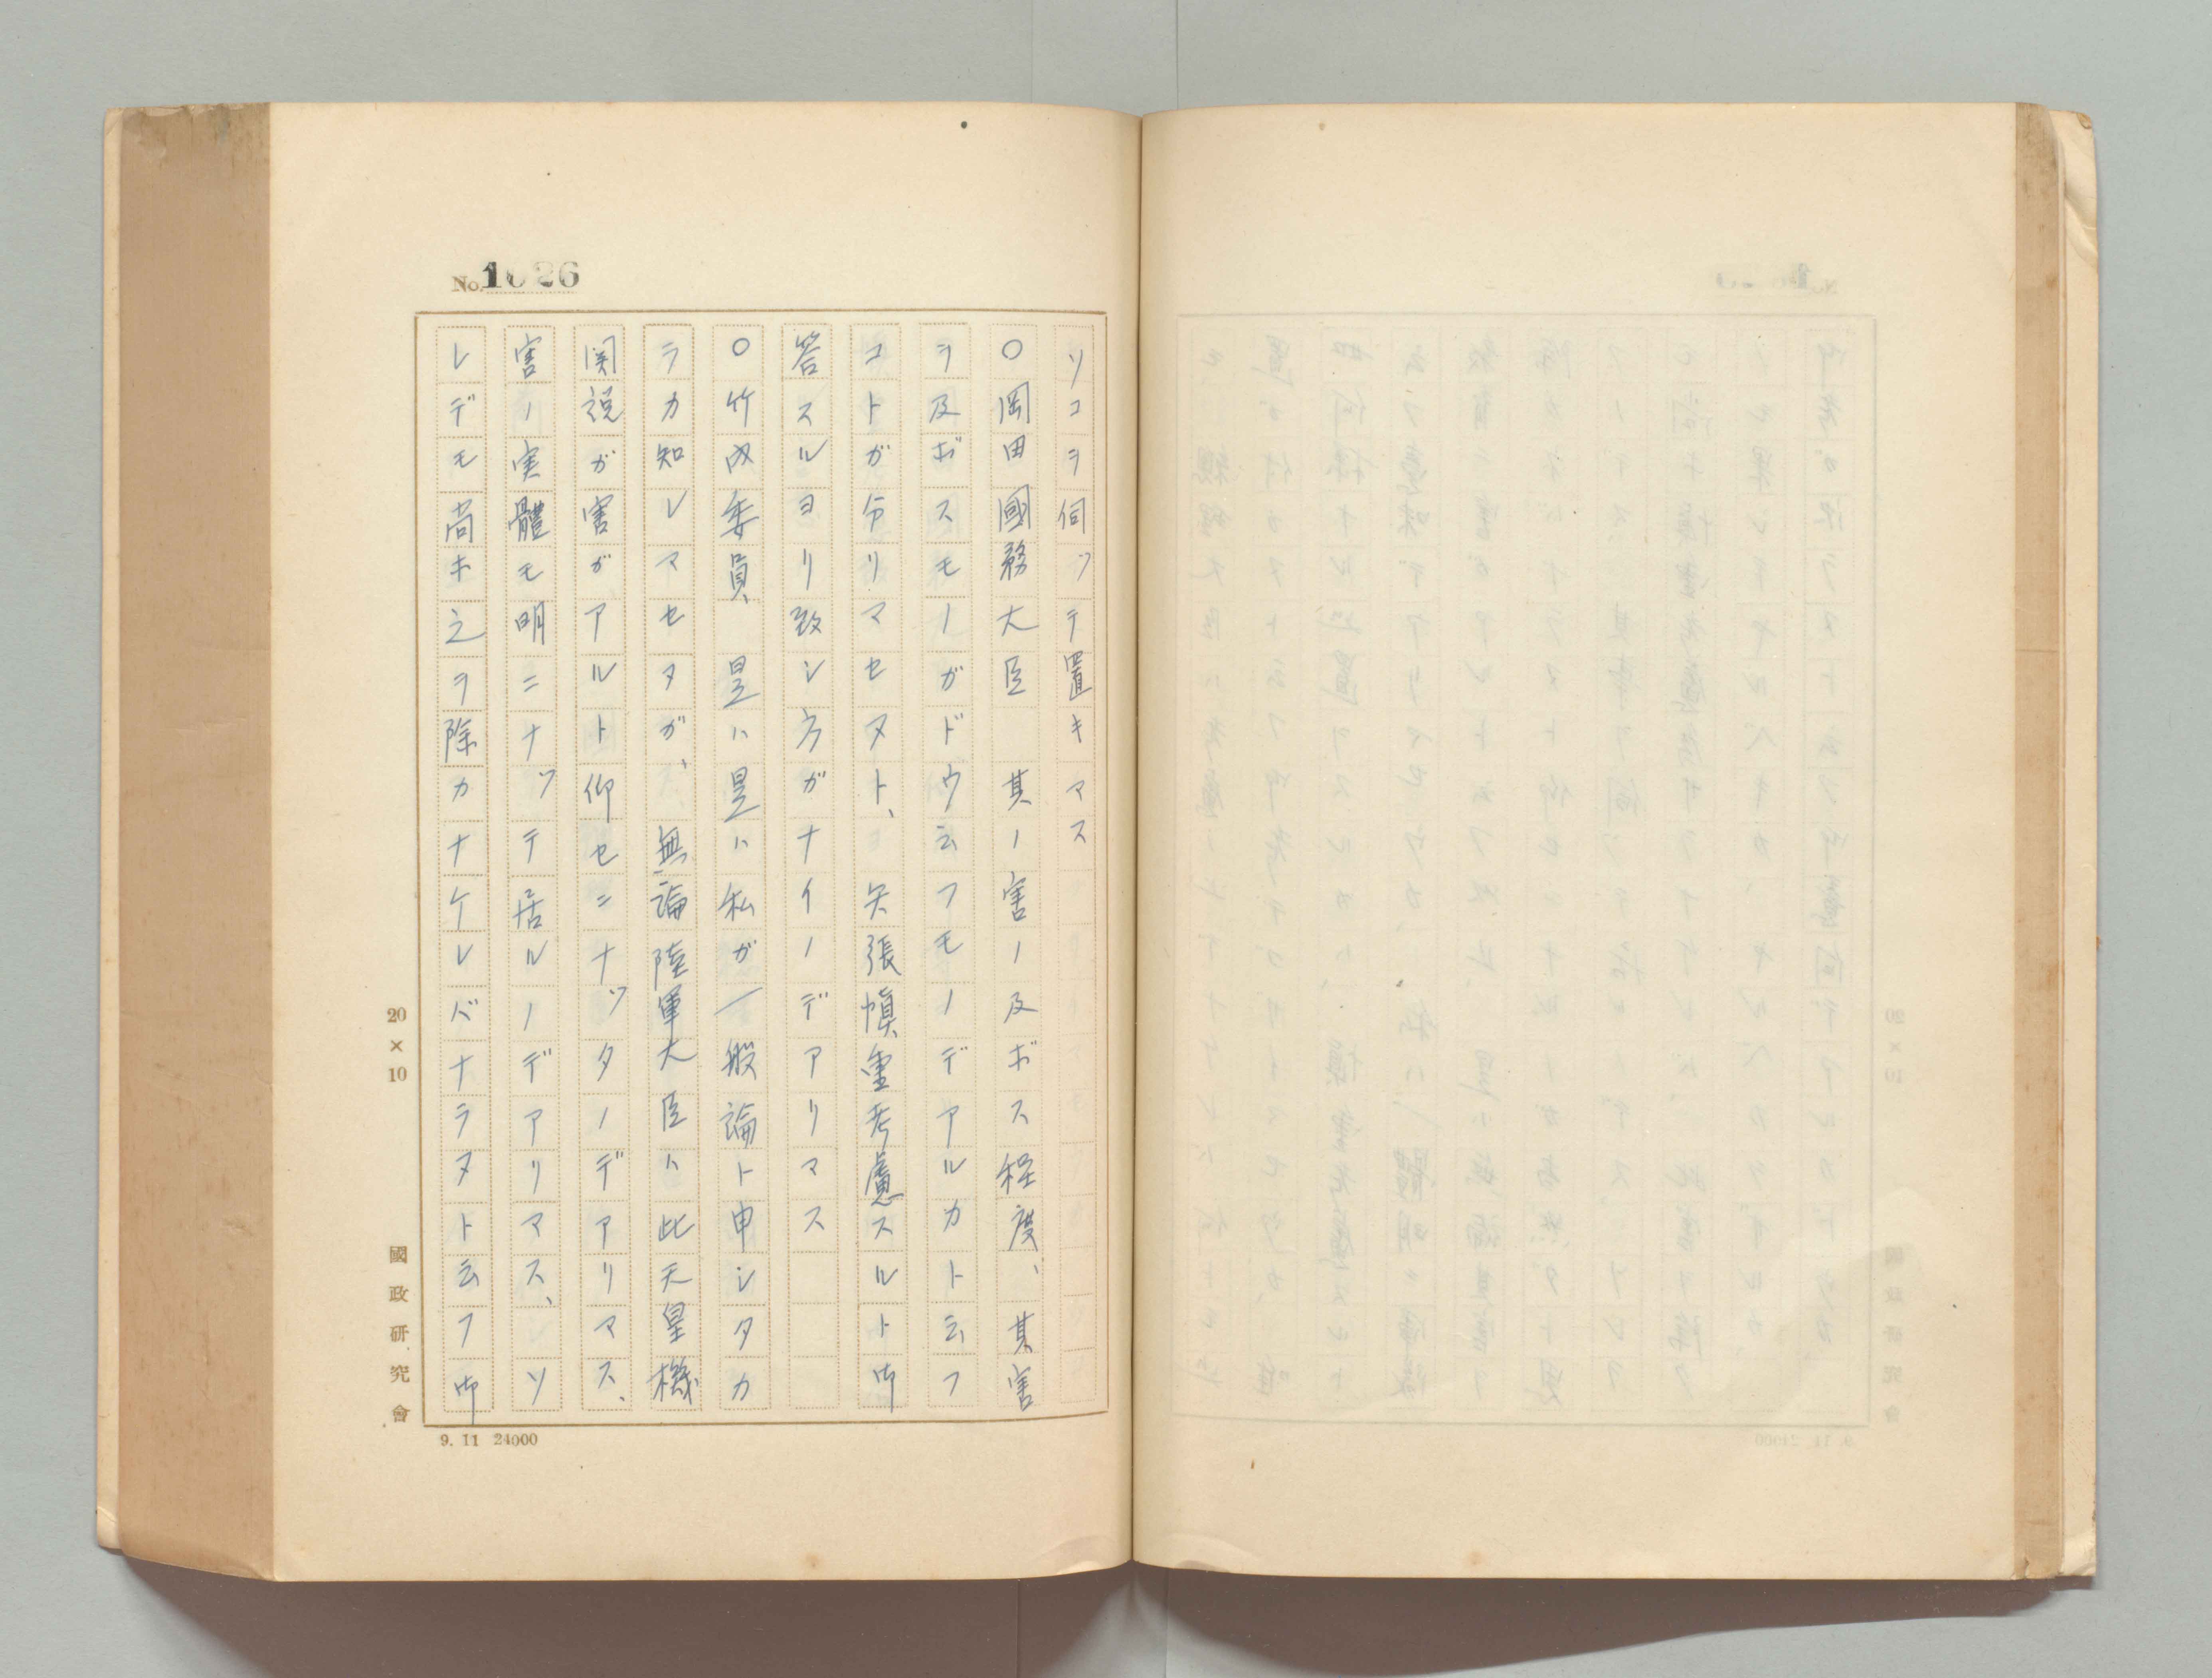 No. 1026
ソコヲ伺ッテ置キマス
○岡田國務大臣　其ノ害ノ及ボス程度、其害
ヲ及ボスモノガドウ云フモノデアルカト云フ
コトガ分リマセヌト、矢張慎重考慮スルト御
答スルヨリ致シ方ガナイノデアリマス
○竹内委員　是ハ是ハ私ガ一般論ト申シタカ
ラカ知レマセヌガ、無論陸軍大臣ハ此天皇機
関説ガ害ガアルト仰セニナッタノデアリマス、
害ノ実體モ明ニナッテ居ルノデアリマス、ソ
レデモ尚ホ之ヲ除カナケレバナラヌト云フ御
20×10
國政研究會
9. 11 24000